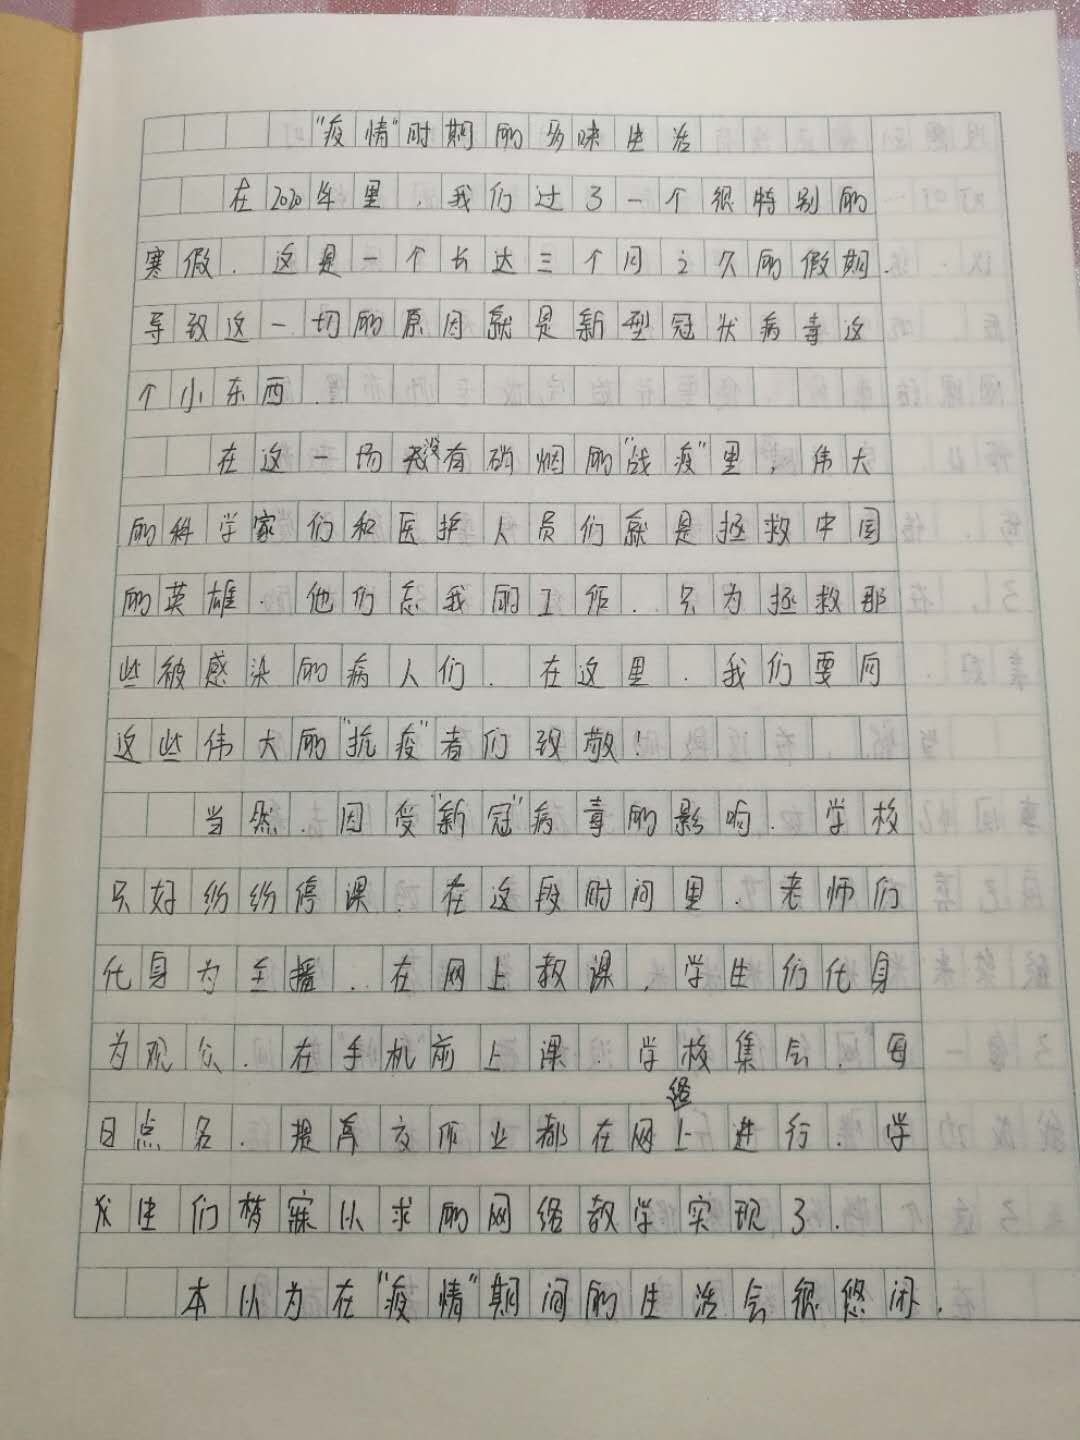 “疫情”时期的多味生活
在2020年里，我们过了一个很特别的
寒假．这是一个长达三个月之久的假期．
导致这一切的原因就是新型冠状病毒这
个小东西．
在这一场没有硝烟的“战疫”里，伟大
的科学家们和医护人员们就是拯救中国
的英雄．他们忘我的工作．只为拯救那
些被感染的病人们．在这里．我们要向
这些伟大的“抗疫”者们致敬！
当然．因受“新冠”病毒的影响．学校
只好纷纷停课．在这段时间里．老师们
化身为主播．在网上教课，学生们化身
为观众．在手机前上课．学校集会．每
日点名．提高交作业都在网络上进行．学
生们梦寐以求的网络教学实现了．
本以为在“疫情”期间的生活会很悠闲．